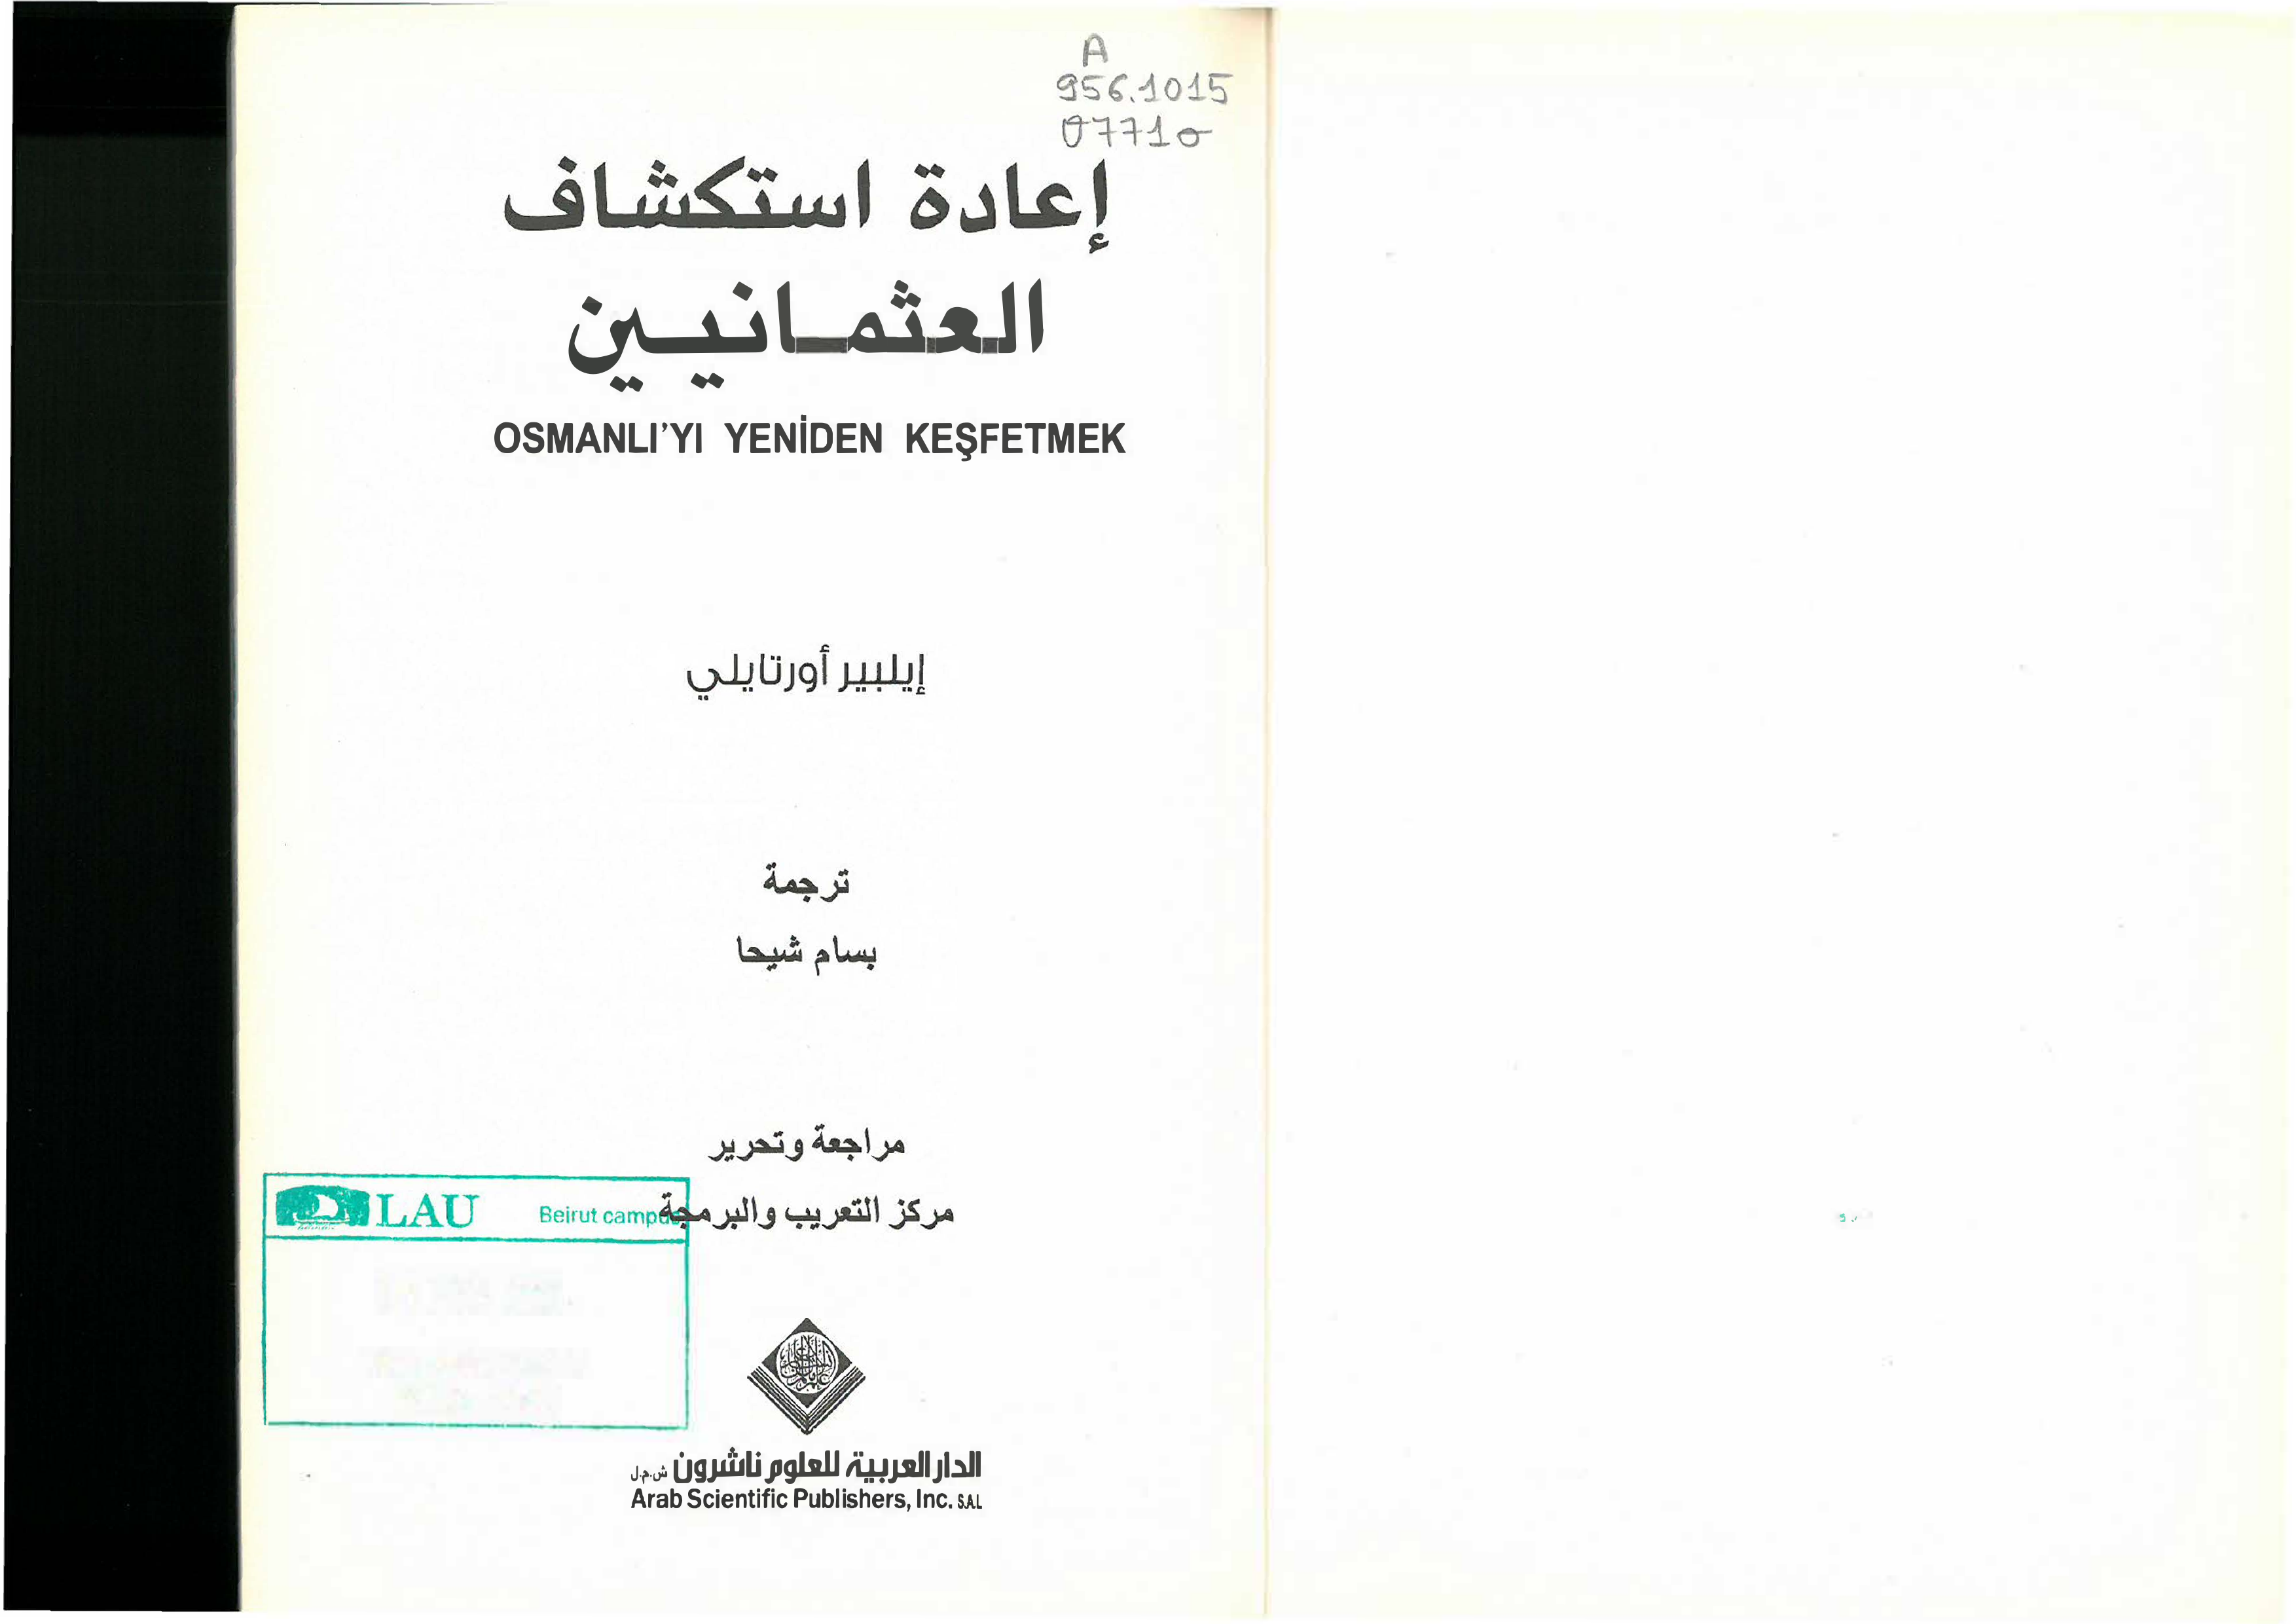 A
956.1015
O771o
إعادة استكشاف
العثمانيين
OSMANLI'YI YENİDEN KEŞFETMEK
إيلبير أورتايلي
ترجمة
بسام شيحا
مراجعة وتحرير
مركز التعريب والبرمجة
LAU Beirut campus
الدار العربية للعلوم ناشرون ش.م.ل
Arab Scientific Publishers, Inc. S.A.L